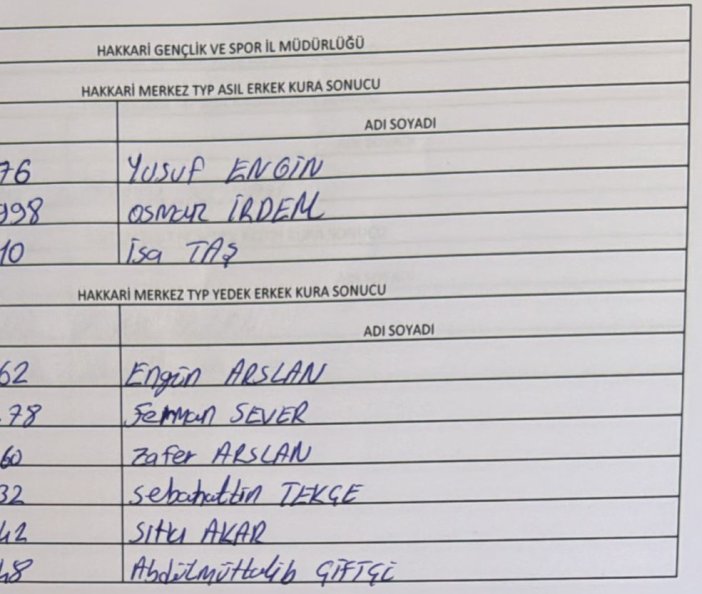 HAKKARİ GENÇLİK VE SPOR İL MÜDÜRLÜĞÜ
HAKKARİ MERKEZ TYP ASIL ERKEK KURA SONUCU
ADI SOYADI
76 Yusuf ENGİN
998 Osman İRDEM
10 İsa TAŞ
HAKKARİ MERKEZ TYP YEDEK ERKEK KURA SONUCU
ADI SOYADI
62 Engin ARSLAN
78 Ferman SEVER
60 Zafer ARSLAN
32 Sebahattin TEKÇE
42 Sıtkı AKAR
48 Abdülmüttalib ÇİFTÇİ